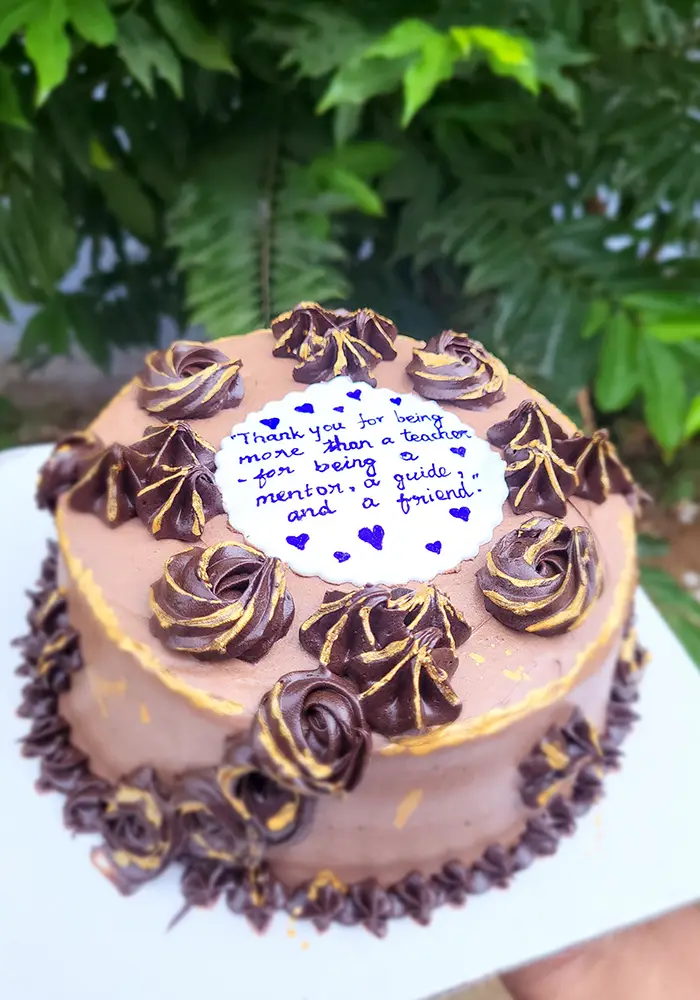 "Thank you for being
more than a teacher
- for being a
mentor, a guide,
and a friend."